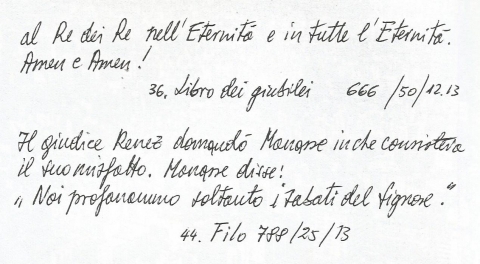 al Re dei Re nell'Eternitá e in tutte l'Eternitá.
Amen e Amen!
36. Libro dei giubilei 666 /50/12.13
Il giudice Renez domandó Manasse in che consisteva
il suo misfatto. Manasse disse:
„ Noi profanammo soltanto i sabati del Signore."
44. Filo 788/25/13